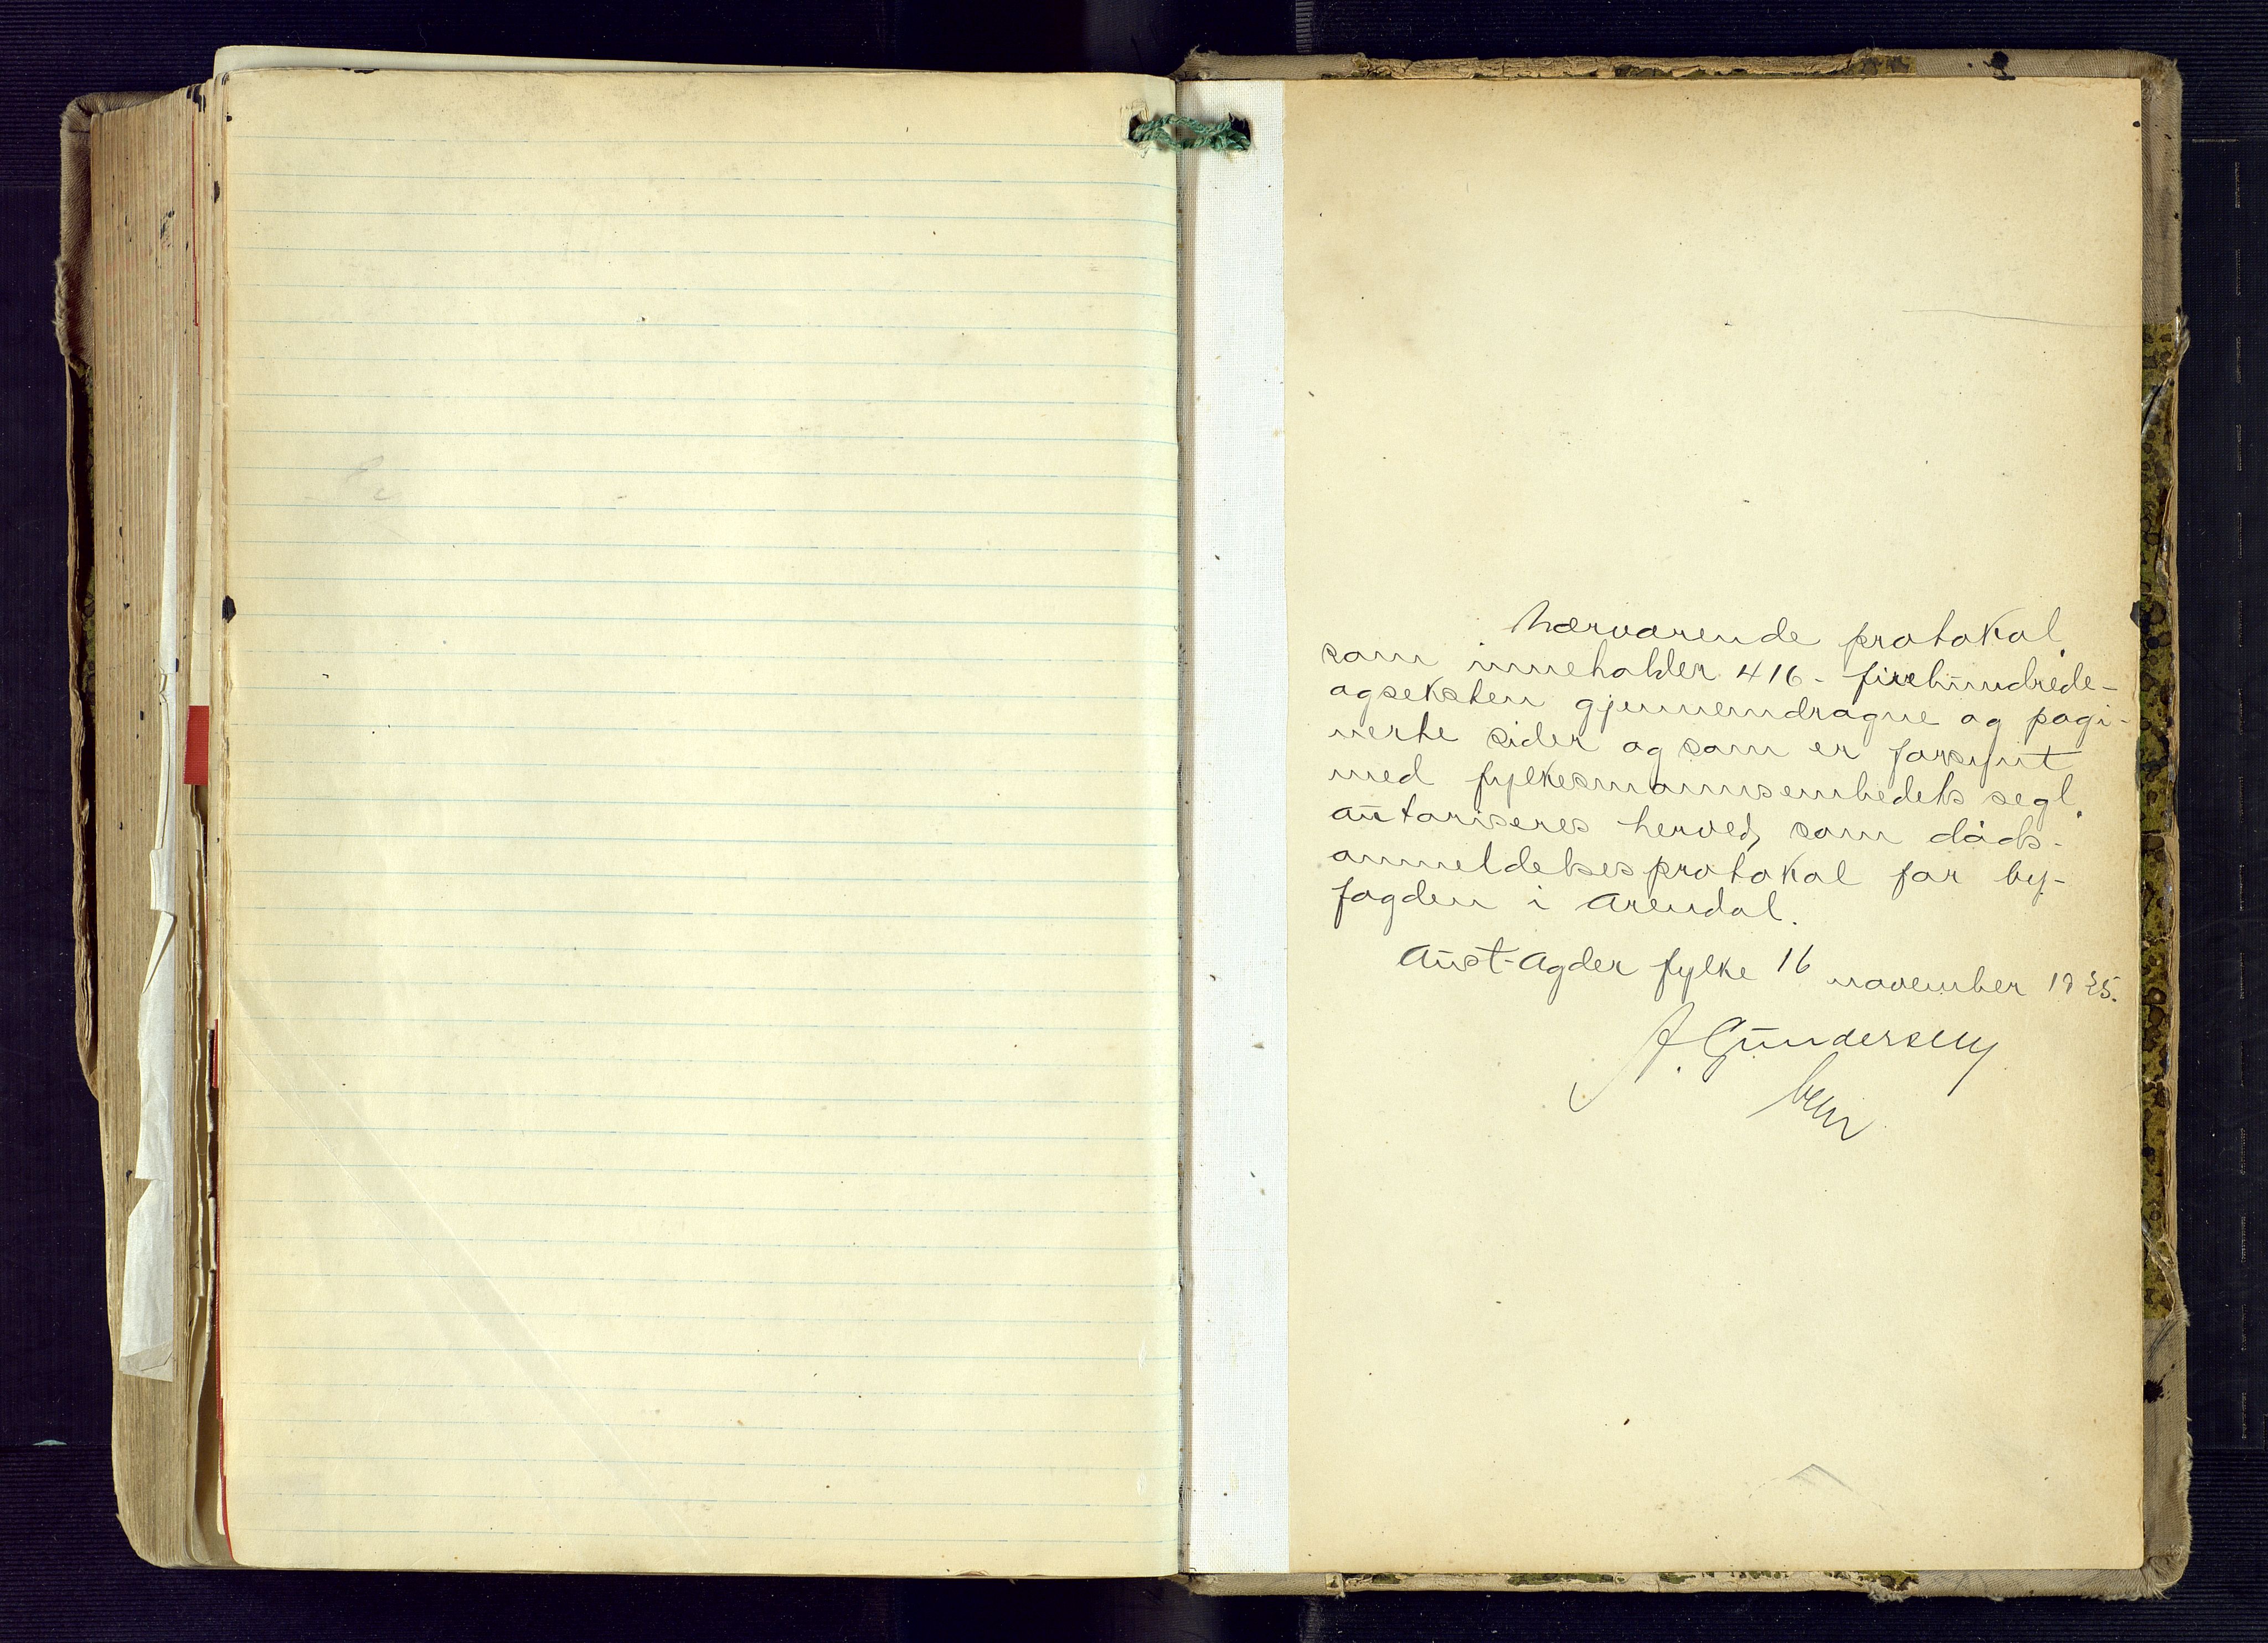 Nærværende protokol,
som inneholder 416 - firehundrede-
ogseksten gjennemdragne og pagi-
nerte sider og som er forsynt
med fylkesmannsembedets segl,
autoriseres herved, som døds-
anmeldelsesprotokol for by-
fogden i Arendal.
Aust-Agder fylke 16 november 1925.
A. Gundersen